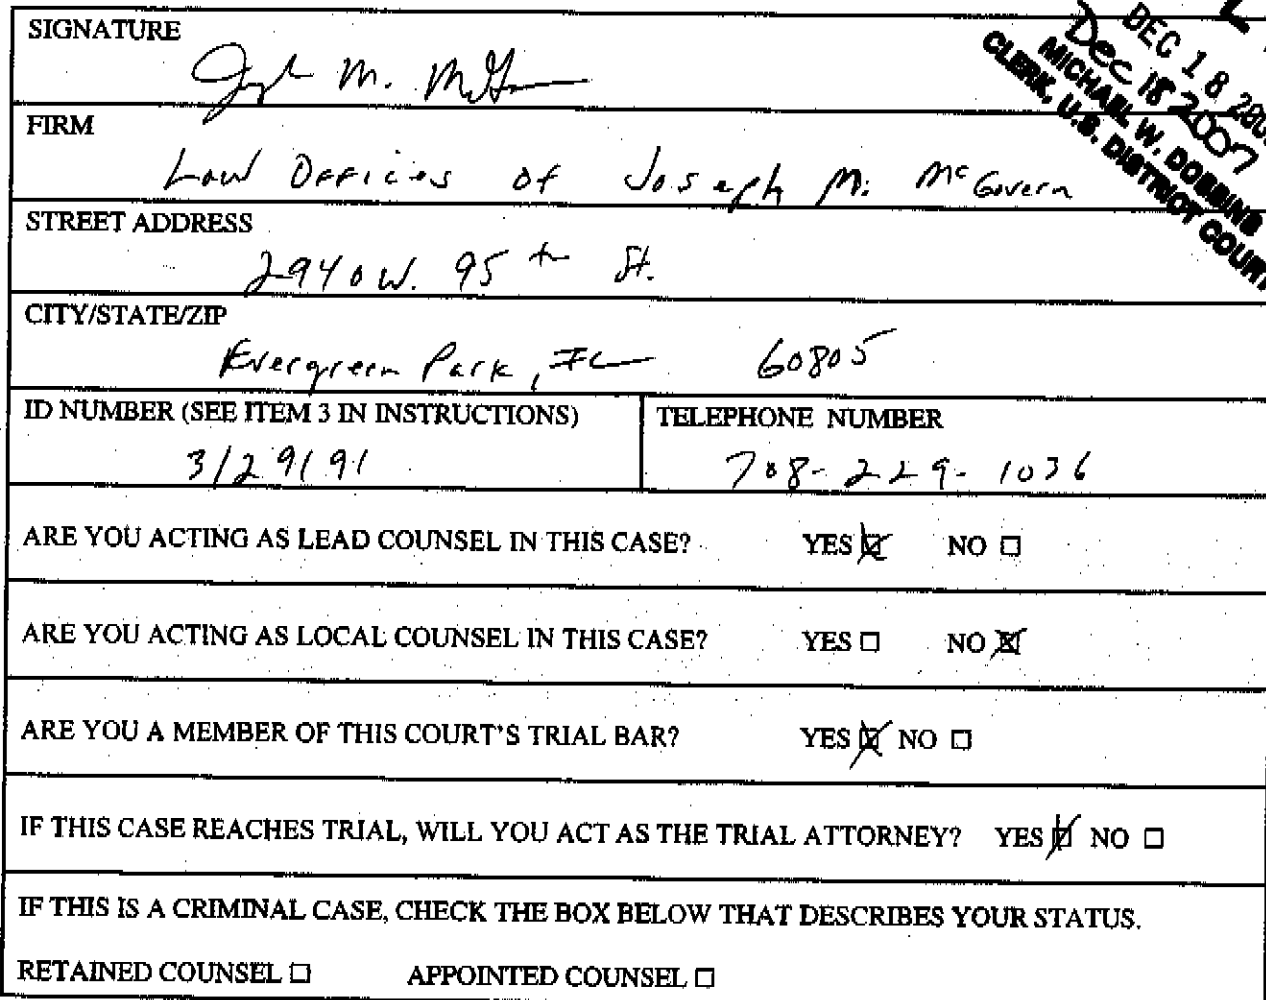 SIGNATURE
DEC 18 200
Dec 18 2007
MICHAEL W. DOBBINS
CLERK, U.S. DISTRICT COURT
M.
FIRM
Law Offices of Joseph M. McGovern
STREET ADDRESS
2940 W. 95th St.
CITY/STATE/ZIP
Evergreen Park, IL 60805
ID NUMBER (SEE ITEM 3 IN INSTRUCTIONS) TELEPHONE NUMBER
3129191 708-229-1036
ARE YOU ACTING AS LEAD COUNSEL IN THIS CASE? YES ☒ NO ☐
ARE YOU ACTING AS LOCAL COUNSEL IN THIS CASE? YES ☐ NO ☒
ARE YOU A MEMBER OF THIS COURT'S TRIAL BAR? YES ☒ NO ☐
IF THIS CASE REACHES TRIAL, WILL YOU ACT AS THE TRIAL ATTORNEY? YES ☒ NO ☐
IF THIS IS A CRIMINAL CASE, CHECK THE BOX BELOW THAT DESCRIBES YOUR STATUS.
RETAINED COUNSEL ☐ APPOINTED COUNSEL ☐